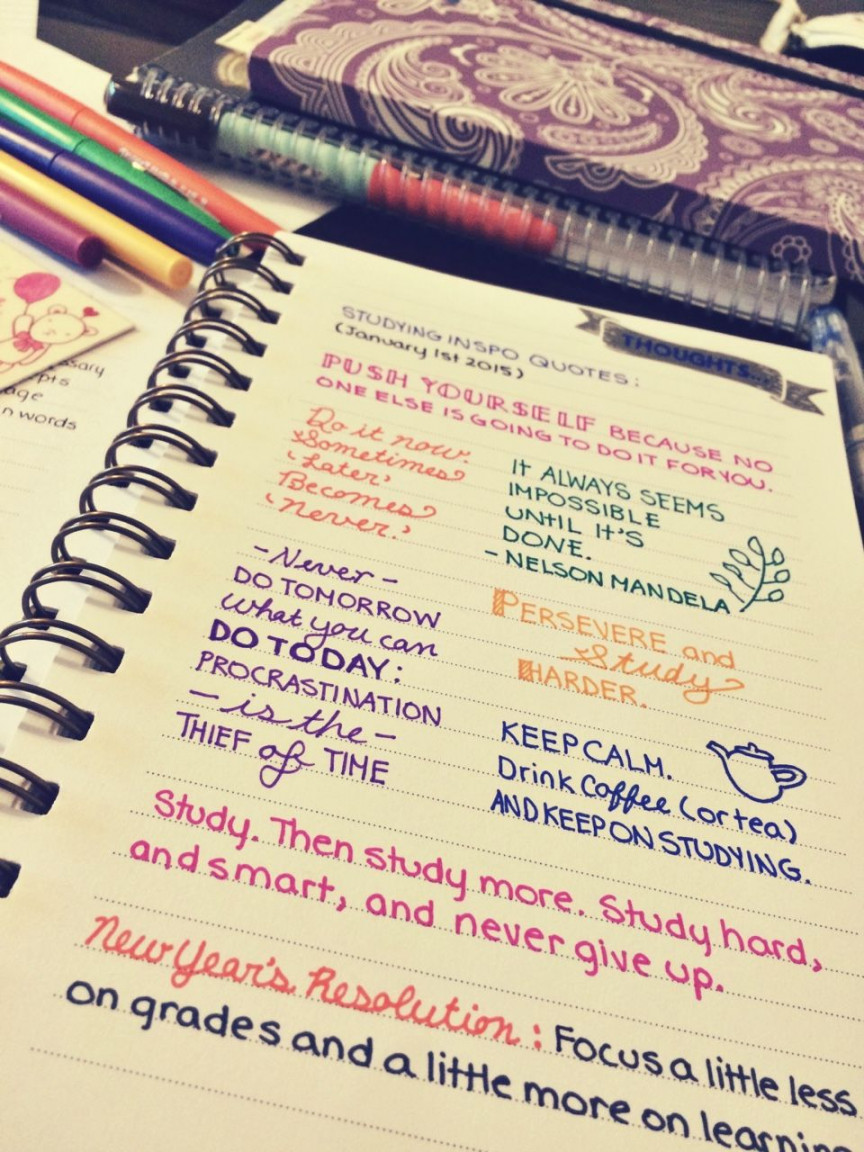 THOUGHTS...
STUDYING INSPO QUOTES:
(January 1st 2015)
PUSH YOURSELF BECAUSE NO
ONE ELSE IS GOING TO DO IT FOR YOU.
Do it now.
Sometimes
'Later'
Becomes
'never.'
IT ALWAYS SEEMS
IMPOSSIBLE
UNTIL IT'S
DONE.
- NELSON MANDELA
- Never -
DO TOMORROW
what you can
DO TODAY:
PROCRASTINATION
- is the -
THIEF of TIME
PERSEVERE and
Study
HARDER.
KEEP CALM.
Drink Coffee (or tea)
AND KEEP ON STUDYING.
Study. Then study more. Study hard,
and smart, and never give up.
New Year's Resolution: Focus a little less
on grades and a little more on learning
age
n words